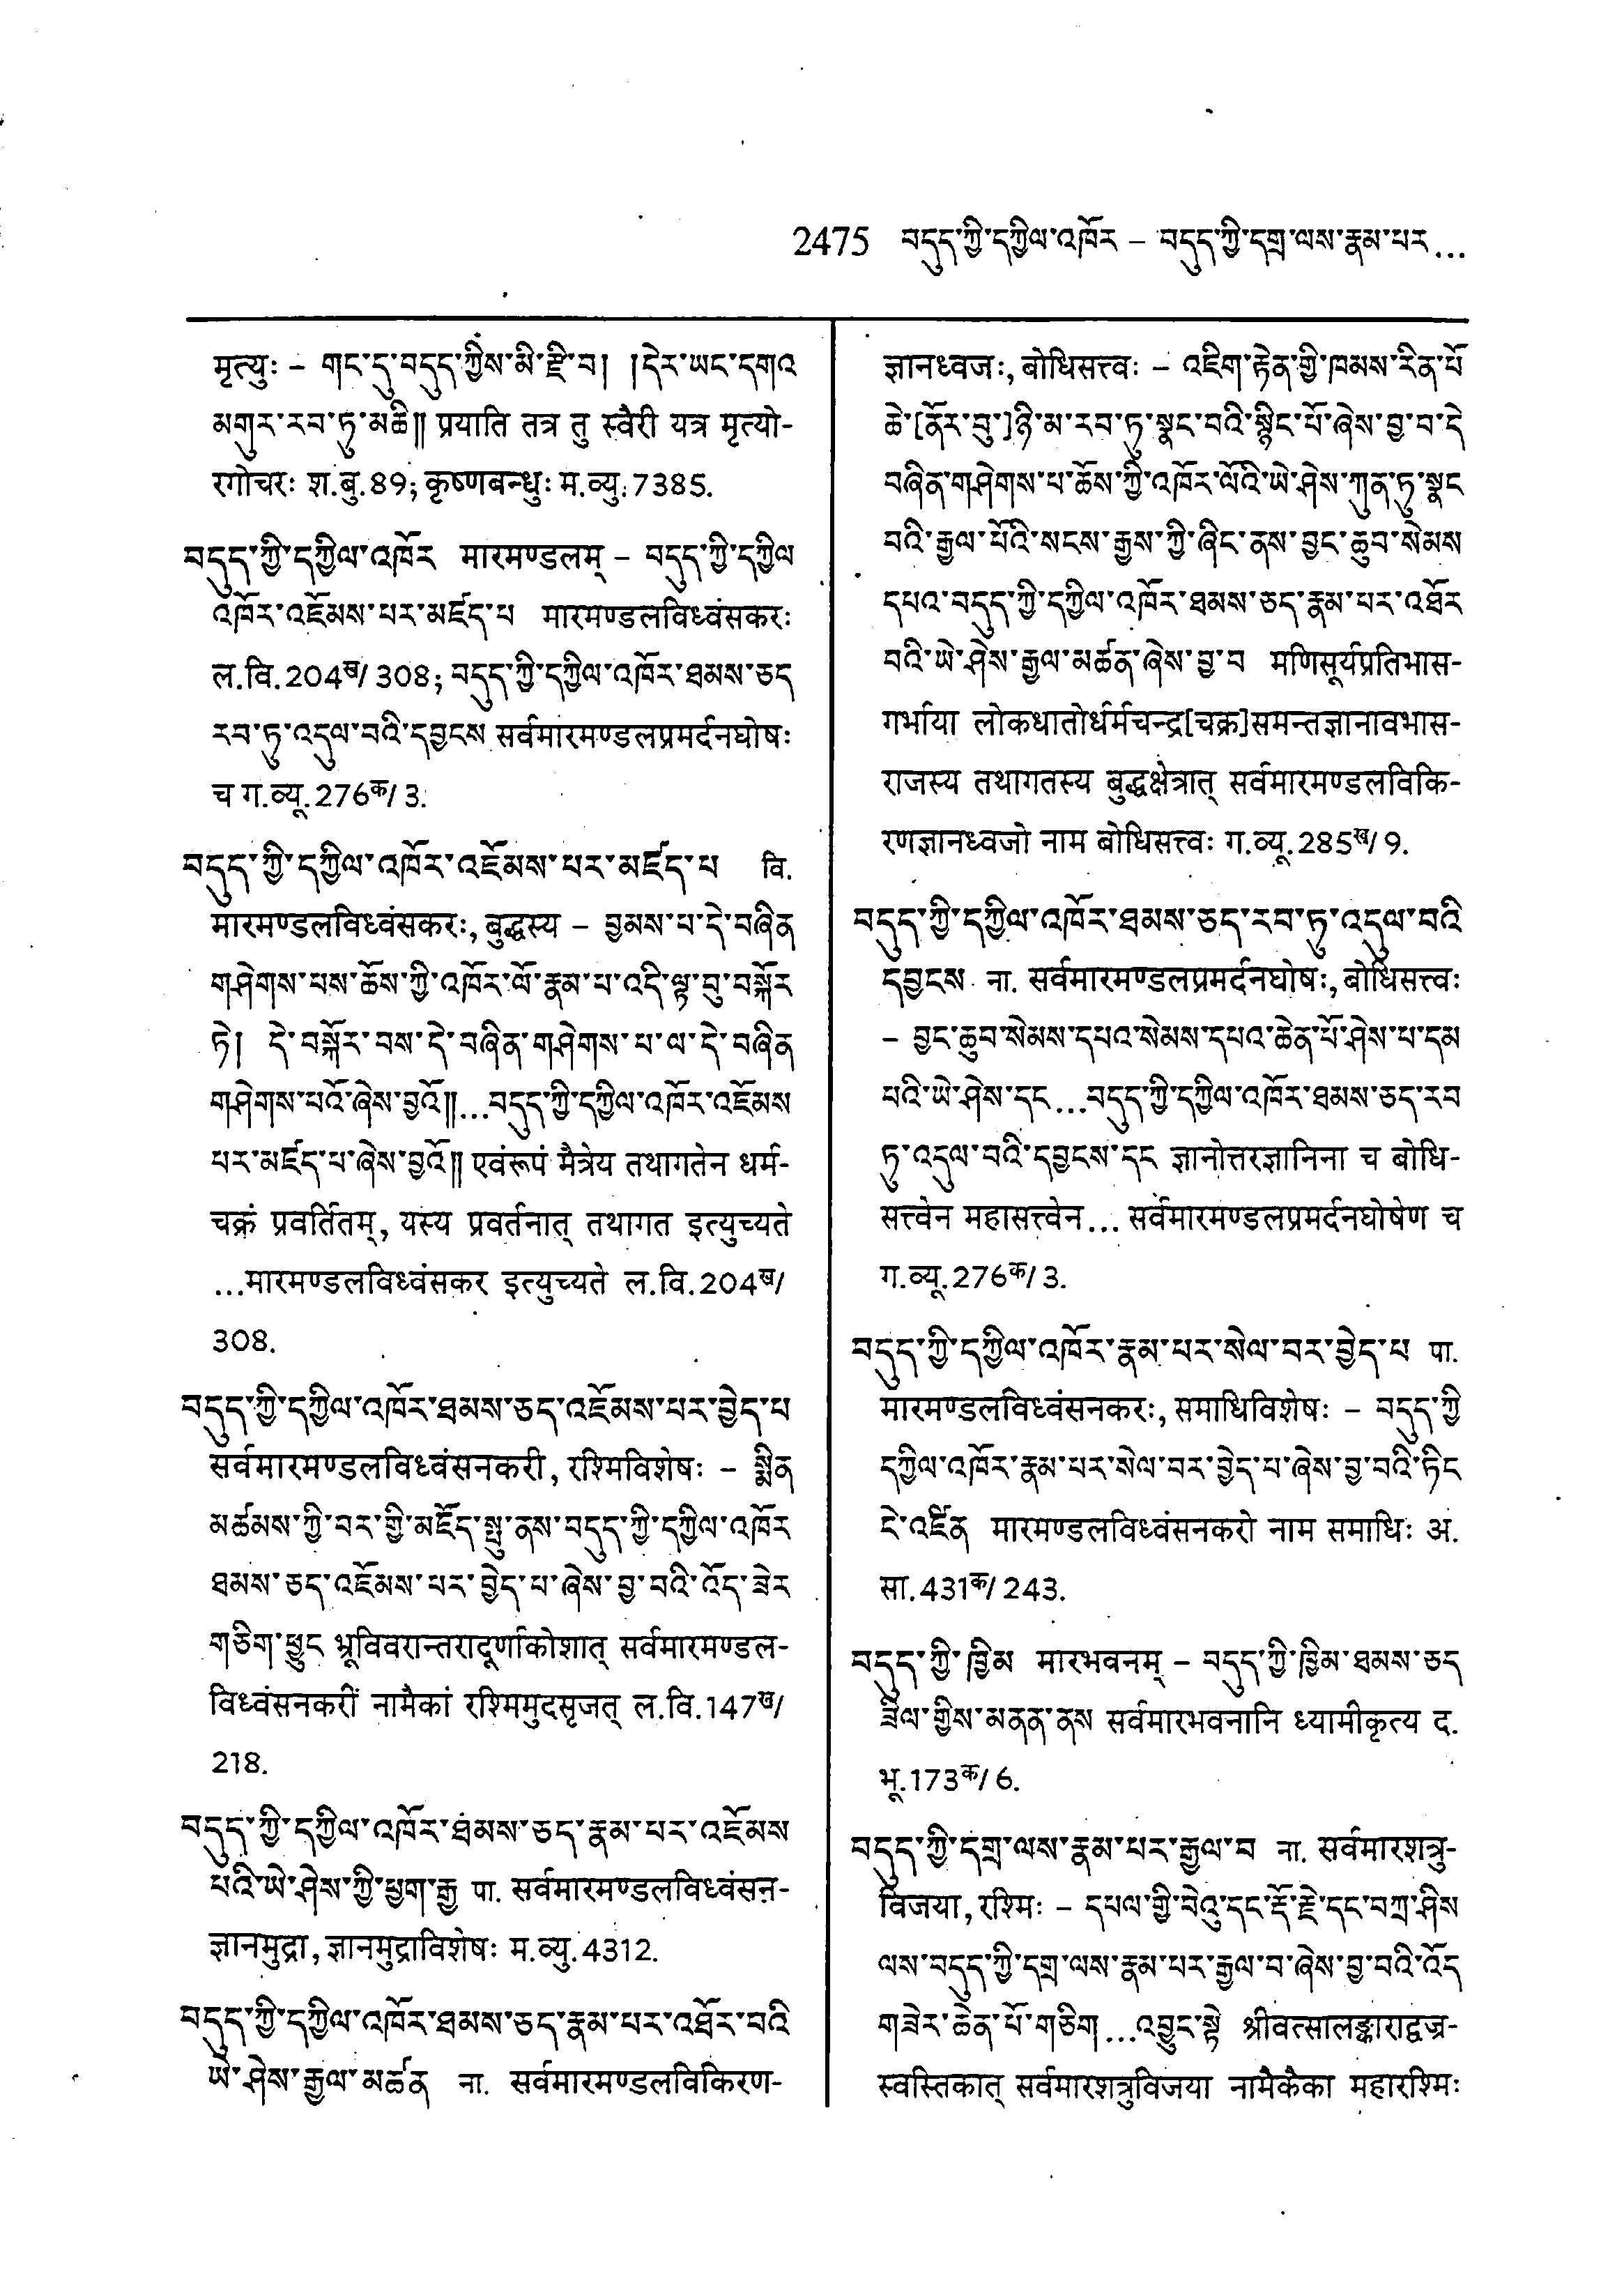 2475 བདུད་ཀྱི་དཀྱིལ་འཁོར – བདུད་ཀྱི་དགྲ་ལས་རྣམ་པར...
मृत्युः – གང་དུ་བདུད་ཀྱིས་མི་རྫི་བ། །དེར་ཡང་དགའ
མགུར་རབ་ཏུ་མཆི༎ प्रयाति तत्र तु स्वैरी यत्र मृत्यो-
रगोचरः श.बु.89; कृष्णबन्धुः म.व्यु.7385.
བདུད་ཀྱི་དཀྱིལ་འཁོར मारमण्डलम् – བདུད་ཀྱི་དཀྱིལ
འཁོར་འཇོམས་པར་མཛད་པ मारमण्डलविध्वंसकरः
ल.वि.204ख/308; བདུད་ཀྱི་དཀྱིལ་འཁོར་ཐམས་ཅད
རབ་ཏུ་འདུལ་བའི་དབྱངས सर्वमारमण्डलप्रमर्दनघोषः
च ग.व्यू.276क/3.
བདུད་ཀྱི་དཀྱིལ་འཁོར་འཇོམས་པར་མཛད་པ वि.
मारमण्डलविध्वंसकरः, बुद्धस्य – བྱམས་པ་དེ་བཞིན
གཤེགས་པས་ཆོས་ཀྱི་འཁོར་ལོ་རྣམ་པ་འདི་ལྟ་བུ་བསྐོར
ཏེ། དེ་བསྐོར་བས་དེ་བཞིན་གཤེགས་པ་ལ་དེ་བཞིན
གཤེགས་པའོ་ཞེས་བྱའོ༎...བདུད་ཀྱི་དཀྱིལ་འཁོར་འཇོམས
པར་མཛད་པ་ཞེས་བྱའོ༎ एवंरूपं मैत्रेय तथागतेन धर्म-
चक्रं प्रवर्तितम्, यस्य प्रवर्तनात् तथागत इत्युच्यते
...मारमण्डलविध्वंसकर इत्युच्यते ल.वि.204ख/
308.
བདུད་ཀྱི་དཀྱིལ་འཁོར་ཐམས་ཅད་འཇོམས་པར་བྱེད་པ
सर्वमारमण्डलविध्वंसनकरी, रश्मिविशेषः – སྨིན
མཚམས་ཀྱི་བར་གྱི་མཛོད་སྤུ་ནས་བདུད་ཀྱི་དཀྱིལ་འཁོར
ཐམས་ཅད་འཇོམས་པར་བྱེད་པ་ཞེས་བྱ་བའི་འོད་ཟེར
གཅིག་ཕྱུང भ्रूविवरान्तरादूर्णाकोशात् सर्वमारमण्डल-
विध्वंसनकरीं नामैकां रश्मिमुदसृजत् ल.वि.147ख/
218.
བདུད་ཀྱི་དཀྱིལ་འཁོར་ཐམས་ཅད་རྣམ་པར་འཇོམས
པའི་ཡེ་ཤེས་ཀྱི་ཕྱག་རྒྱ पा. सर्वमारमण्डलविध्वंसन-
ज्ञानमुद्रा, ज्ञानमुद्राविशेषः म.व्यु.4312.
བདུད་ཀྱི་དཀྱིལ་འཁོར་ཐམས་ཅད་རྣམ་པར་འཐོར་བའི
ཡེ་ཤེས་རྒྱལ་མཚན ना. सर्वमारमण्डलविकिरण-
ज्ञानध्वजः, बोधिसत्त्वः – འཇིག་རྟེན་གྱི་ཁམས་རིན་པོ
ཆེ་[ནོར་བུ་]ཉི་མ་རབ་ཏུ་སྣང་བའི་སྙིང་པོ་ཞེས་བྱ་བ་དེ
བཞིན་གཤེགས་པ་ཆོས་ཀྱི་འཁོར་ལོའི་ཡེ་ཤེས་ཀུན་ཏུ་སྣང
བའི་རྒྱལ་པོའི་སངས་རྒྱས་ཀྱི་ཞིང་ནས་བྱང་ཆུབ་སེམས
དཔའ་བདུད་ཀྱི་དཀྱིལ་འཁོར་ཐམས་ཅད་རྣམ་པར་འཐོར
བའི་ཡེ་ཤེས་རྒྱལ་མཚན་ཞེས་བྱ་བ मणिसूर्यप्रतिभास-
गर्भाया लोकधातोर्धर्मचन्द्र[चक्र]समन्तज्ञानावभास-
राजस्य तथागतस्य बुद्धक्षेत्रात् सर्वमारमण्डलविकि-
रणज्ञानध्वजो नाम बोधिसत्त्वः ग.व्यू.285ख/9.
བདུད་ཀྱི་དཀྱིལ་འཁོར་ཐམས་ཅད་རབ་ཏུ་འདུལ་བའི
དབྱངས ना. सर्वमारमण्डलप्रमर्दनघोषः, बोधिसत्त्वः
– བྱང་ཆུབ་སེམས་དཔའ་སེམས་དཔའ་ཆེན་པོ་ཤེས་པ་དམ
པའི་ཡེ་ཤེས་དང...བདུད་ཀྱི་དཀྱིལ་འཁོར་ཐམས་ཅད་རབ
ཏུ་འདུལ་བའི་དབྱངས་དང ज्ञानोत्तरज्ञानिना च बोधि-
सत्त्वेन महासत्त्वेन... सर्वमारमण्डलप्रमर्दनघोषेण च
ग.व्यू.276क/3.
བདུད་ཀྱི་དཀྱིལ་འཁོར་རྣམ་པར་སེལ་བར་བྱེད་པ पा.
मारमण्डलविध्वंसनकरः, समाधिविशेषः – བདུད་ཀྱི
དཀྱིལ་འཁོར་རྣམ་པར་སེལ་བར་བྱེད་པ་ཞེས་བྱ་བའི་ཏིང
ངེ་འཛིན मारमण्डलविध्वंसनकरो नाम समाधिः अ.
सा.431क/243.
བདུད་ཀྱི་ཁྱིམ मारभवनम् – བདུད་ཀྱི་ཁྱིམ་ཐམས་ཅད
ཟིལ་གྱིས་མནན་ནས सर्वमारभवनानि ध्यामीकृत्य द.
भू.173क/6.
བདུད་ཀྱི་དགྲ་ལས་རྣམ་པར་རྒྱལ་བ ना. सर्वमारशत्रु-
विजया, रश्मिः – དཔལ་གྱི་བེའུ་དང་རྡོ་རྗེ་དང་བཀྲ་ཤིས
ལས་བདུད་ཀྱི་དགྲ་ལས་རྣམ་པར་རྒྱལ་བ་ཞེས་བྱ་བའི་འོད
གཟེར་ཆེན་པོ་གཅིག...འབྱུང་སྟེ श्रीवत्सालङ्काराद्वज्र-
स्वस्तिकात् सर्वमारशत्रुविजया नामैकैका महारश्मिः